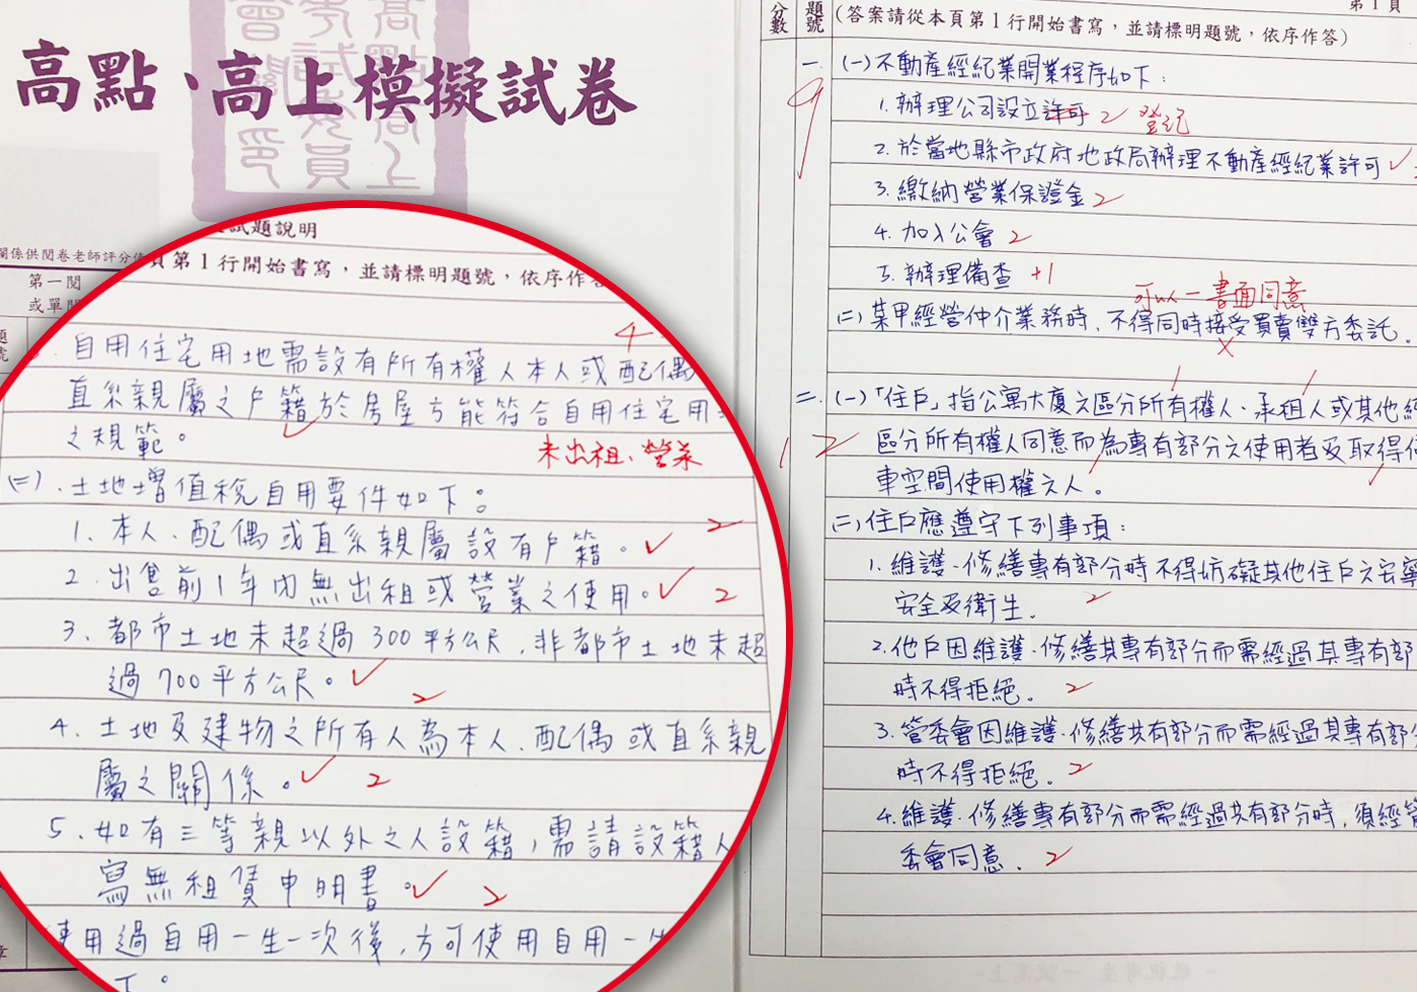 高點‧高上模擬試卷
試題說明
頁第1行開始書寫，並請標明題號，依序作答
關係供閱卷老師評分
第一閱
或單
4
自用住宅用地需設有所有權人本人或配偶
直系親屬之戶籍於房屋方能符合自用住宅用
之規範。
未出租、營業
(二).土地增值稅自用要件如下。
1.本人、配偶或直系親屬設有戶籍。 2
2.出售前1年內無出租或營業之使用。 2
3.都市土地未超過300平方公尺，非都市土地未超
過700平方公尺。 2
4.土地及建物之所有人為本人、配偶或直系親
屬之關係。 2
5.如有三等親以外之人設籍，需請設籍人
寫無租賃申明書。 2
使用過自用一生一次後，方可使用自用一生
下。
第1頁
分數 題號 (答案請從本頁第1行開始書寫，並請標明題號，依序作答)
9
一、(一)不動產經紀業開業程序如下：
1.辦理公司設立許可 2 登記
2.於當地縣市政府地政局辦理不動產經紀業許可
3.繳納營業保證金 2
4.加入公會 2
5.辦理備查 +1
可以一書面同意
(二)某甲經營仲介業務時、不得同時接受買賣雙方委託。
12
二、(一)「住戶」指公寓大廈之區分所有權人、承租人或其他經
區分所有權人同意而為專有部分之使用者及取得停
車空間使用權之人。
(二)住戶應遵守下列事項：
1.維護、修繕專有部分時不得妨礙其他住戶之安寧
安全及衛生. 2
2.他戶因維護、修繕其專有部分而需經過其專有部
時不得拒絕. 2
3.管委會因維護、修繕共有部分而需經過其專有部分
時不得拒絕. 2
4.維護、修繕專有部分而需經過共有部分時，須經管
委會同意. 2